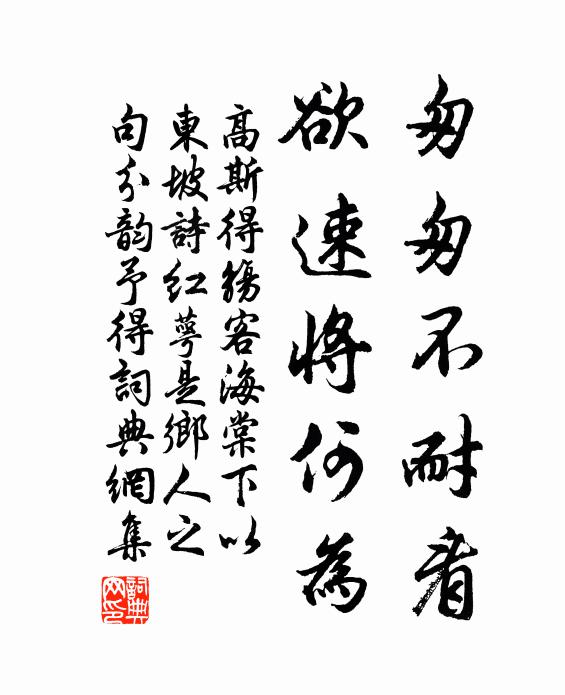 匆匆不耐看
欲速將何為
高斯得觴客海棠下以
東坡詩紅萼是鄉人之
句分韵予得詞典網集
詞典
网